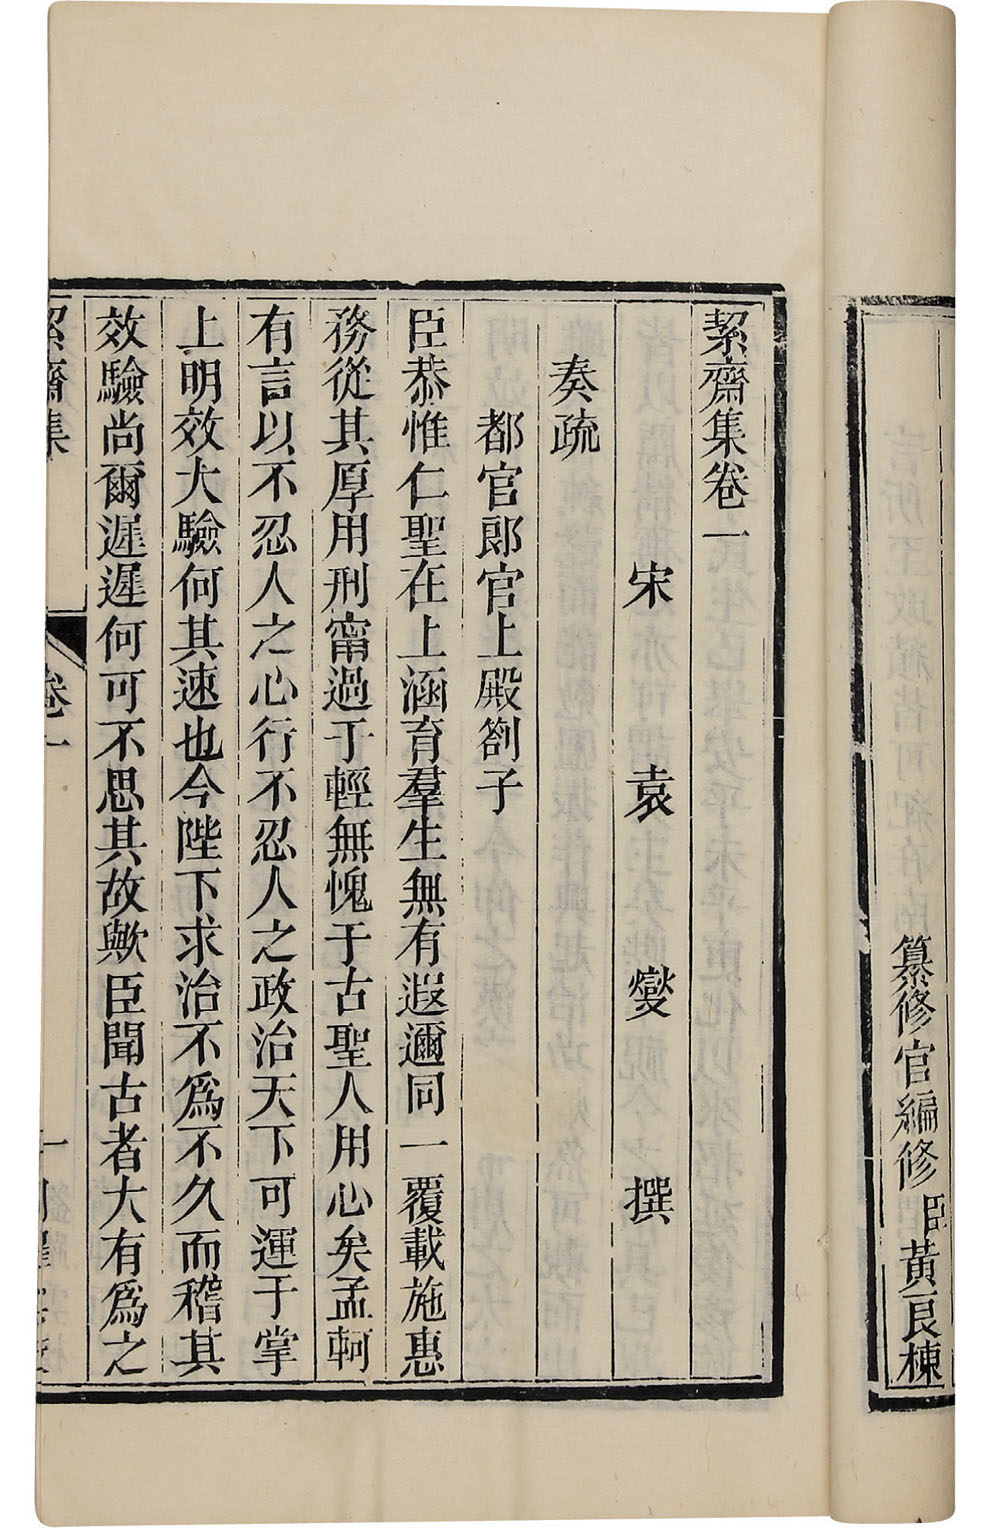 纂修官編修臣黃良棟
絜齋集卷一
宋 袁燮 撰
奏疏
都官郎官上殿劄子
臣恭惟仁聖在上涵育羣生無有遐邇同一覆載施惠
務從其厚用刑甯過于輕無愧于古聖人用心矣孟軻
有言以不忍人之心行不忍人之政治天下可運于掌
上明效大驗何其速也今陛下求治不爲不久而稽其
效驗尚爾遲遲何可不思其故歟臣聞古者大有爲之
絜齋集 卷一 一